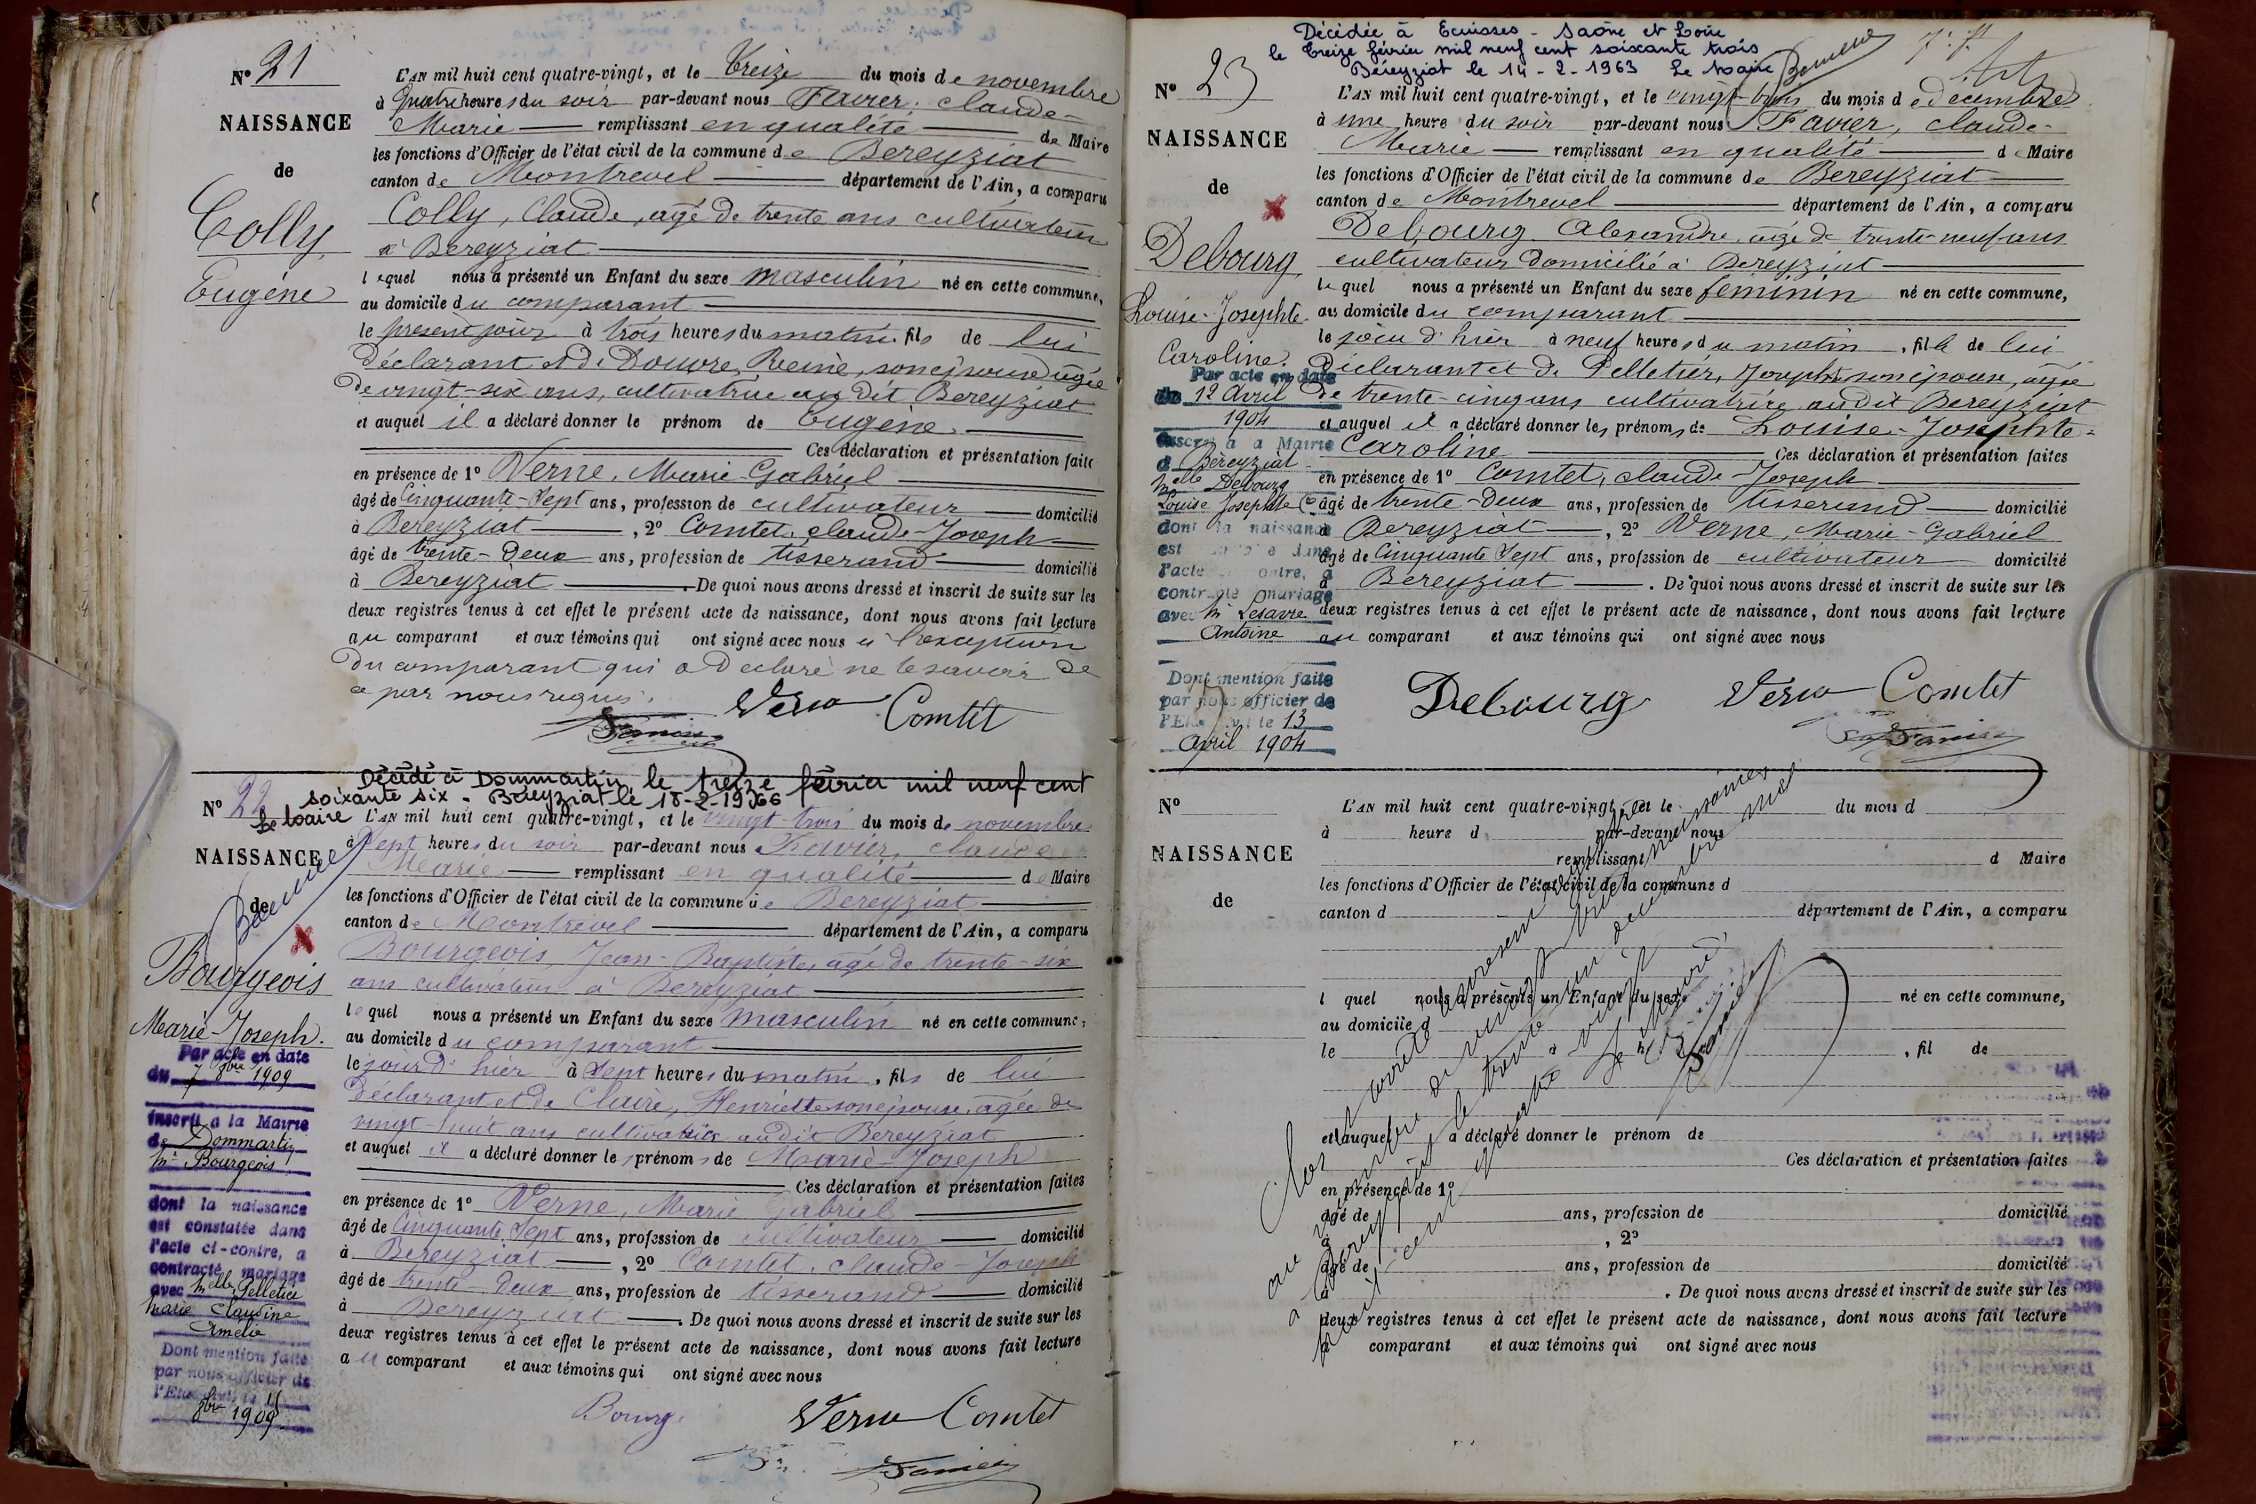 N° 21
NAISSANCE
de
Colly,
Eugéne
L'AN mil huit cent quatre-vingt, et le treize du mois de novembre
à quatre heures du soir par-devant nous Favier, claude-
Marie remplissant en qualité de Maire
les fonctions d'Officier de l'état civil de la commune de Bereyziat
canton de Montrevel département de l'Ain, a comparu
Colly, Claude, agé de trente ans cultivateur
à Bereyziat
lequel nous a présenté un Enfant du sexe masculin né en cette commune,
au domicile du comparant
le présent jour à trois heures du matin fils de lui
déclarant et de Douvre, Reine, son épouse agée
de vingt-six ans, cultivatrice au dit Bereyziat
et auquel il a déclaré donner le prénom de Eugène.
Ces déclaration et présentation faite
en présence de 1° Verne, Marie-Gabriel
âgé de Cinquante-Sept ans, profession de cultivateur domicilié
à Bereyziat, 2° Comtet, claude-Joseph
âgé de trente-deux ans, profession de tisserand domicilié
à Bereyziat. De quoi nous avons dressé et inscrit de suite sur les
deux registres tenus à cet effet le présent acte de naissance, dont nous avons fait lecture
au comparant et aux témoins qui ont signé avec nous à l'exception
du comparant qui a declaré ne le savoir de
ce par nous requis.
Verne Comtet
Décédé à Dommartin le treize février mil neuf cent
soixante six - Béreyziat le 18-2-1966
Le Maire
N° 22
NAISSANCE
de
Bourgeois
Marie-Joseph.
Par acte en date
du 7 8bre 1909
inscrit a la Mairie
de Dommartin
Mr Bourgeois
dont la naissance
est constatée dans
l'acte ci-contre, a
contracté mariage
avec Melle Pelletier
Marie Claudine
Amélie
Dont mention faite
par nous officier de
l'Etat civil le
8bre 1909
L'AN mil huit cent quatre-vingt, et le vingt-trois du mois de novembre
à Sept heures du soir par-devant nous Favier, claude
Marie remplissant en qualité de Maire
les fonctions d'Officier de l'état civil de la commune de Bereyziat
canton de Montrevel département de l'Ain, a comparu
Bourgeois, Jean-Baptiste, agé de trente-six
ans cultivateur à Bereyziat
lequel nous a présenté un Enfant du sexe masculin né en cette commune,
au domicile du comparant
le jour d'hier à Sept heures du matin, fils de lui
déclarant et de Claire, Henriette son épouse, agée de
vingt-huit ans cultivatrice audit Bereyziat
et auquel il a déclaré donner les prénoms de Marie-Joseph
Ces déclaration et présentation faites
en présence de 1° Verne, Marie Gabriel
âgé de Cinquante Sept ans, profession de cultivateur domicilié
à Bereyziat, 2° Comtet, claude-Joseph
âgé de trente-deux ans, profession de tisserand domicilié
à Bereyziat. De quoi nous avons dressé et inscrit de suite sur les
deux registres tenus à cet effet le présent acte de naissance, dont nous avons fait lecture
au comparant et aux témoins qui ont signé avec nous
Verne Comtet
Décédée à Ecuisses - Saône et Loire
le treize février mil neuf cent soixante trois
Béreyziat le 14-2-1963 Le Maire
N° 23
NAISSANCE
de
Debourg,
Louise-Josephte-
Caroline.
Par acte en date
du 12 Avril
1904
inscrit a la Mairie
d Béreyziat
Melle Debourg
Louise Josephte Cne
dont la naissance
est constatée dans
l'acte ci-contre, a
contracté mariage
avec Mr Lesavre
Antoine
Dont mention faite
par nous officier de
l'Etat civil le 13
avril 1904
L'AN mil huit cent quatre-vingt, et le vingt-trois du mois de decembre
à une heure du soir par-devant nous Favier, claude-
Marie remplissant en qualité de Maire
les fonctions d'Officier de l'état civil de la commune de Bereyziat
canton de Montrevel département de l'Ain, a comparu
Debourg Alexandre, agé de trente-neuf ans
cultivateur domicilié à Bereyziat
lequel nous a présenté un Enfant du sexe féminin né en cette commune,
au domicile du comparant
le jour d'hier à neuf heures du matin, fille de lui
déclarant et de Pelletier, Josephte son épouse, agée
de trente-cinq ans cultivatrice audit Bereyziat
et auquel il a déclaré donner les prénoms de Louise-Josephte-
Caroline Ces déclaration et présentation faites
en présence de 1° Comtet, claude-Joseph
âgé de trente-deux ans, profession de tisserand domicilié
à Bereyziat, 2° Verne, Marie-Gabriel
âgé de Cinquante Sept ans, profession de cultivateur domicilié
à Bereyziat. De quoi nous avons dressé et inscrit de suite sur les
deux registres tenus à cet effet le présent acte de naissance, dont nous avons fait lecture
au comparant et aux témoins qui ont signé avec nous
Debourg Verne Comtet
N°
NAISSANCE
de
L'AN mil huit cent quatre-vingt, et le du mois d
à heure d par-devant nous
remplissant d Maire
les fonctions d'Officier de l'état civil de la commune d
canton d département de l'Ain, a comparu
l quel nous a présenté un Enfant du sexe né en cette commune,
au domicile d
le à h, fil de
et auquel a déclaré donner le prénom de
Ces déclaration et présentation faites
en présence de 1°
âgé de ans, profession de domicilié
à , 2°
âgé de ans, profession de domicilié
à . De quoi nous avons dressé et inscrit de suite sur les
deux registres tenus à cet effet le présent acte de naissance, dont nous avons fait lecture
a comparant et aux témoins qui ont signé avec nous
Clos et arrêté le présent registre
au nombre de vingt trois naissances
à Bereyziat le trente un decembre mil
huit cent quatre vingt
Le Maire